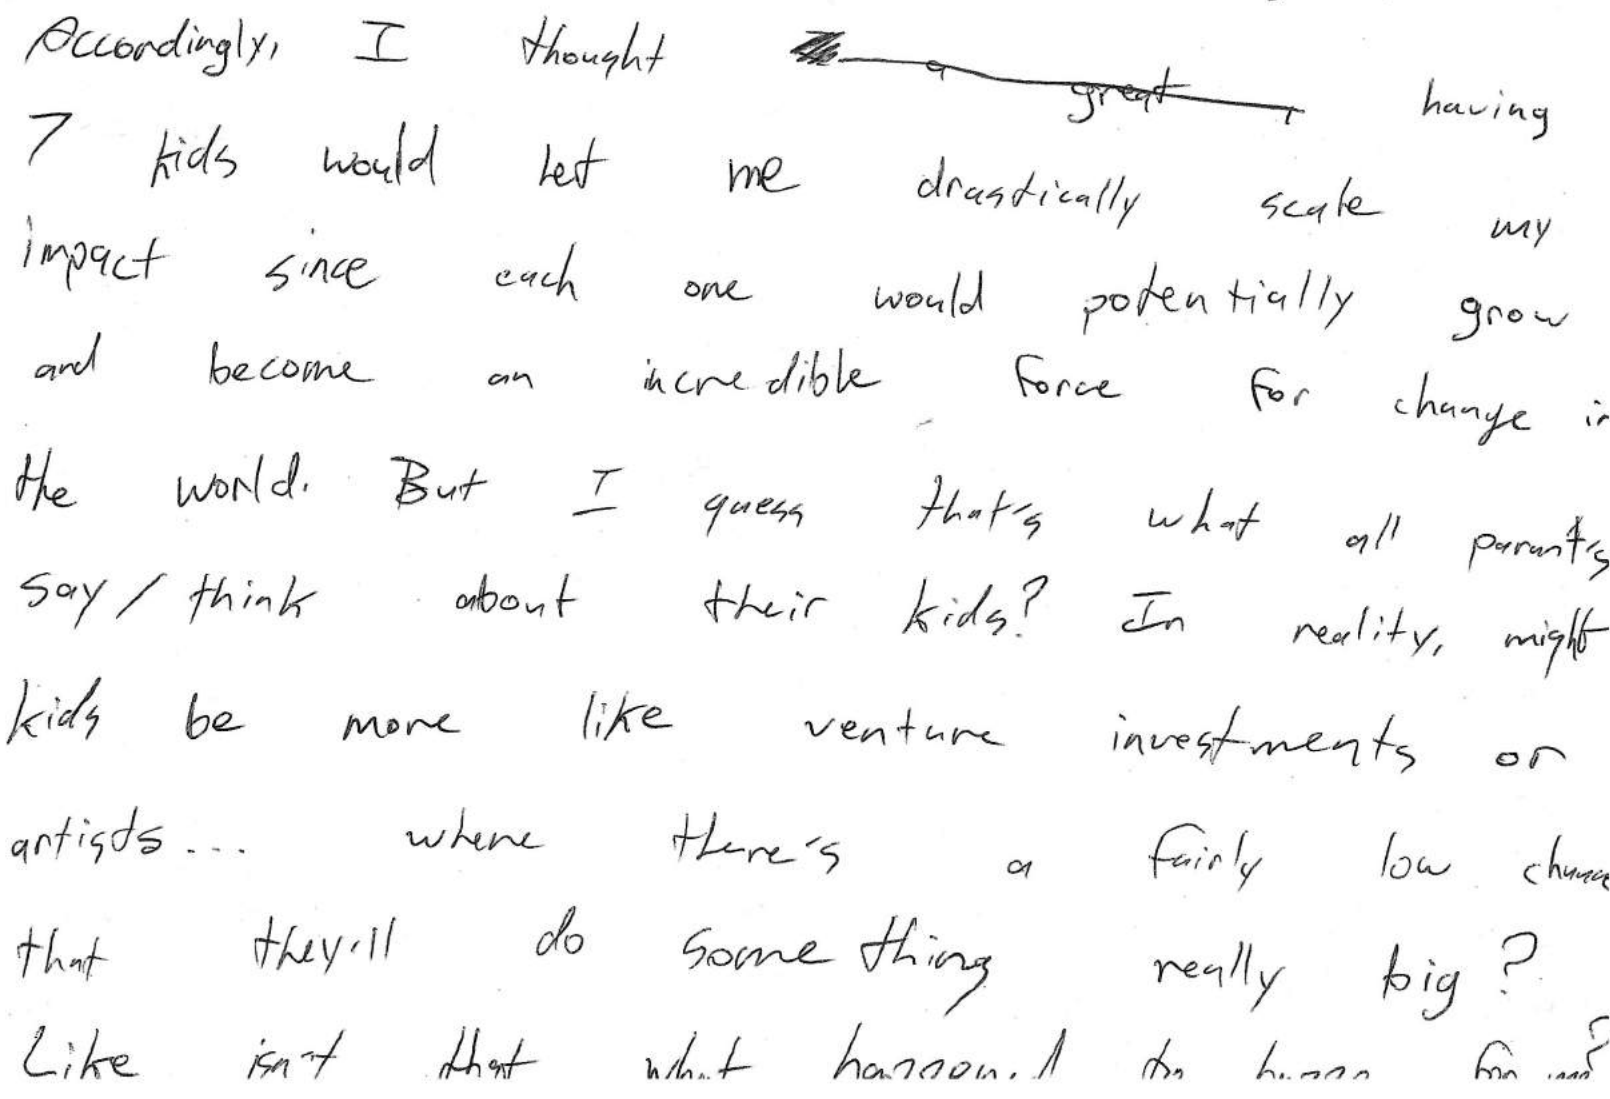 Accordingly, I thought a great having
7 kids would let me drastically scale my
impact since each one would potentially grow
and become an incredible force for change in
the world. But I guess that's what all parent's
say / think about their kids? In reality, might
kids be more like venture investments or
artists... where there's a fairly low chance
that they'll do something really big?
Like isn't that what happened to